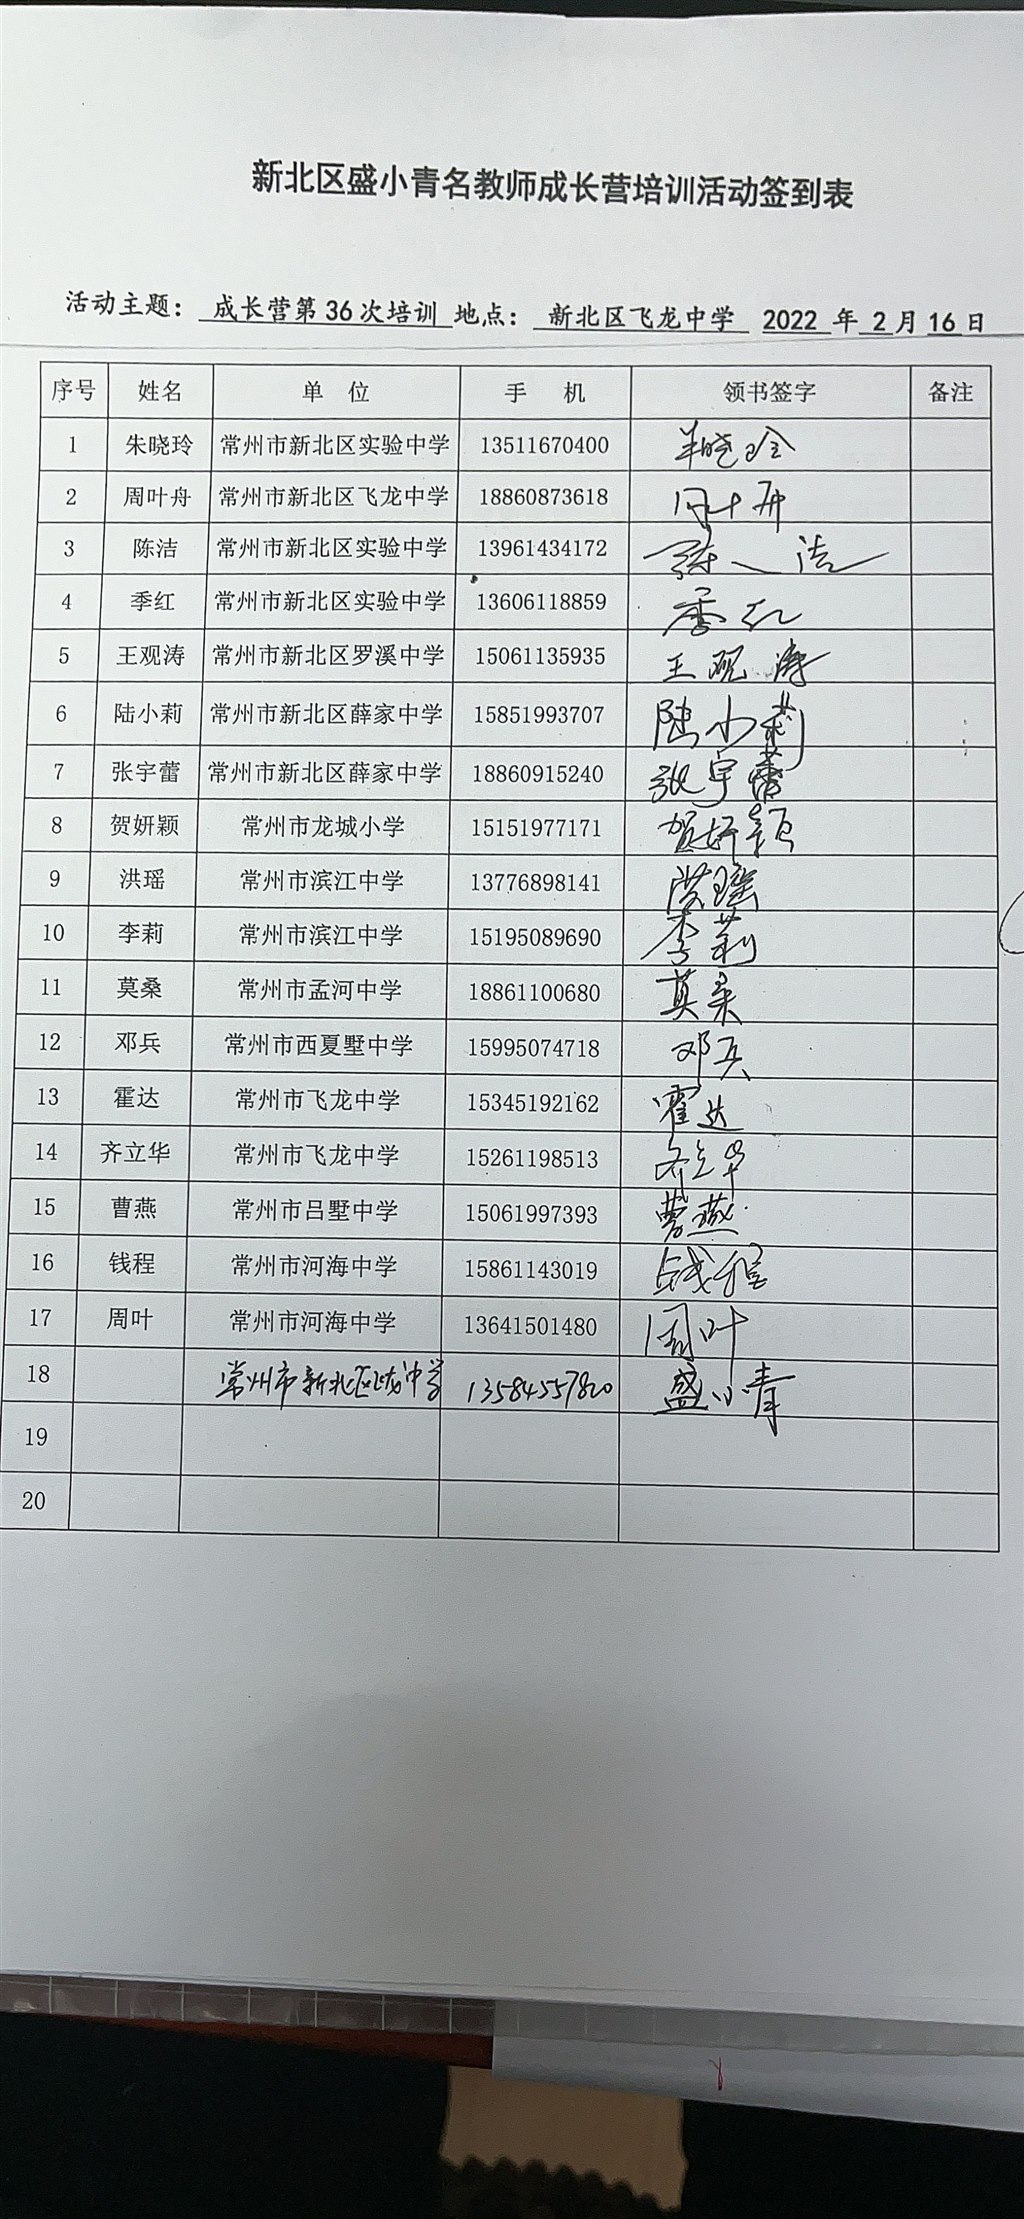 新北区盛小青名教师成长营培训活动签到表
活动主题： 成长营第36次培训 地点： 新北区飞龙中学 2022 年 2 月 16 日
序号 姓名 单 位 手 机 领书签字 备注
1 朱晓玲 常州市新北区实验中学 13511670400 朱晓玲
2 周叶舟 常州市新北区飞龙中学 18860873618 周叶舟
3 陈洁 常州市新北区实验中学 13961434172 陈洁
4 季红 常州市新北区实验中学 13606118859 季红
5 王观涛 常州市新北区罗溪中学 15061135935 王观涛
6 陆小莉 常州市新北区薛家中学 15851993707 陆小莉
7 张宇蕾 常州市新北区薛家中学 18860915240 张宇蕾
8 贺妍颖 常州市龙城小学 15151977171 贺妍颖
9 洪瑶 常州市滨江中学 13776898141 洪瑶
10 李莉 常州市滨江中学 15195089690 李莉
11 莫桑 常州市孟河中学 18861100680 莫桑
12 邓兵 常州市西夏墅中学 15995074718 邓兵
13 霍达 常州市飞龙中学 15345192162 霍达
14 齐立华 常州市飞龙中学 15261198513 齐立华
15 曹燕 常州市吕墅中学 15061997393 曹燕
16 钱程 常州市河海中学 15861143019 钱程
17 周叶 常州市河海中学 13641501480 周叶
18 常州市新北区飞龙中学 13584557820 盛小青
19
20